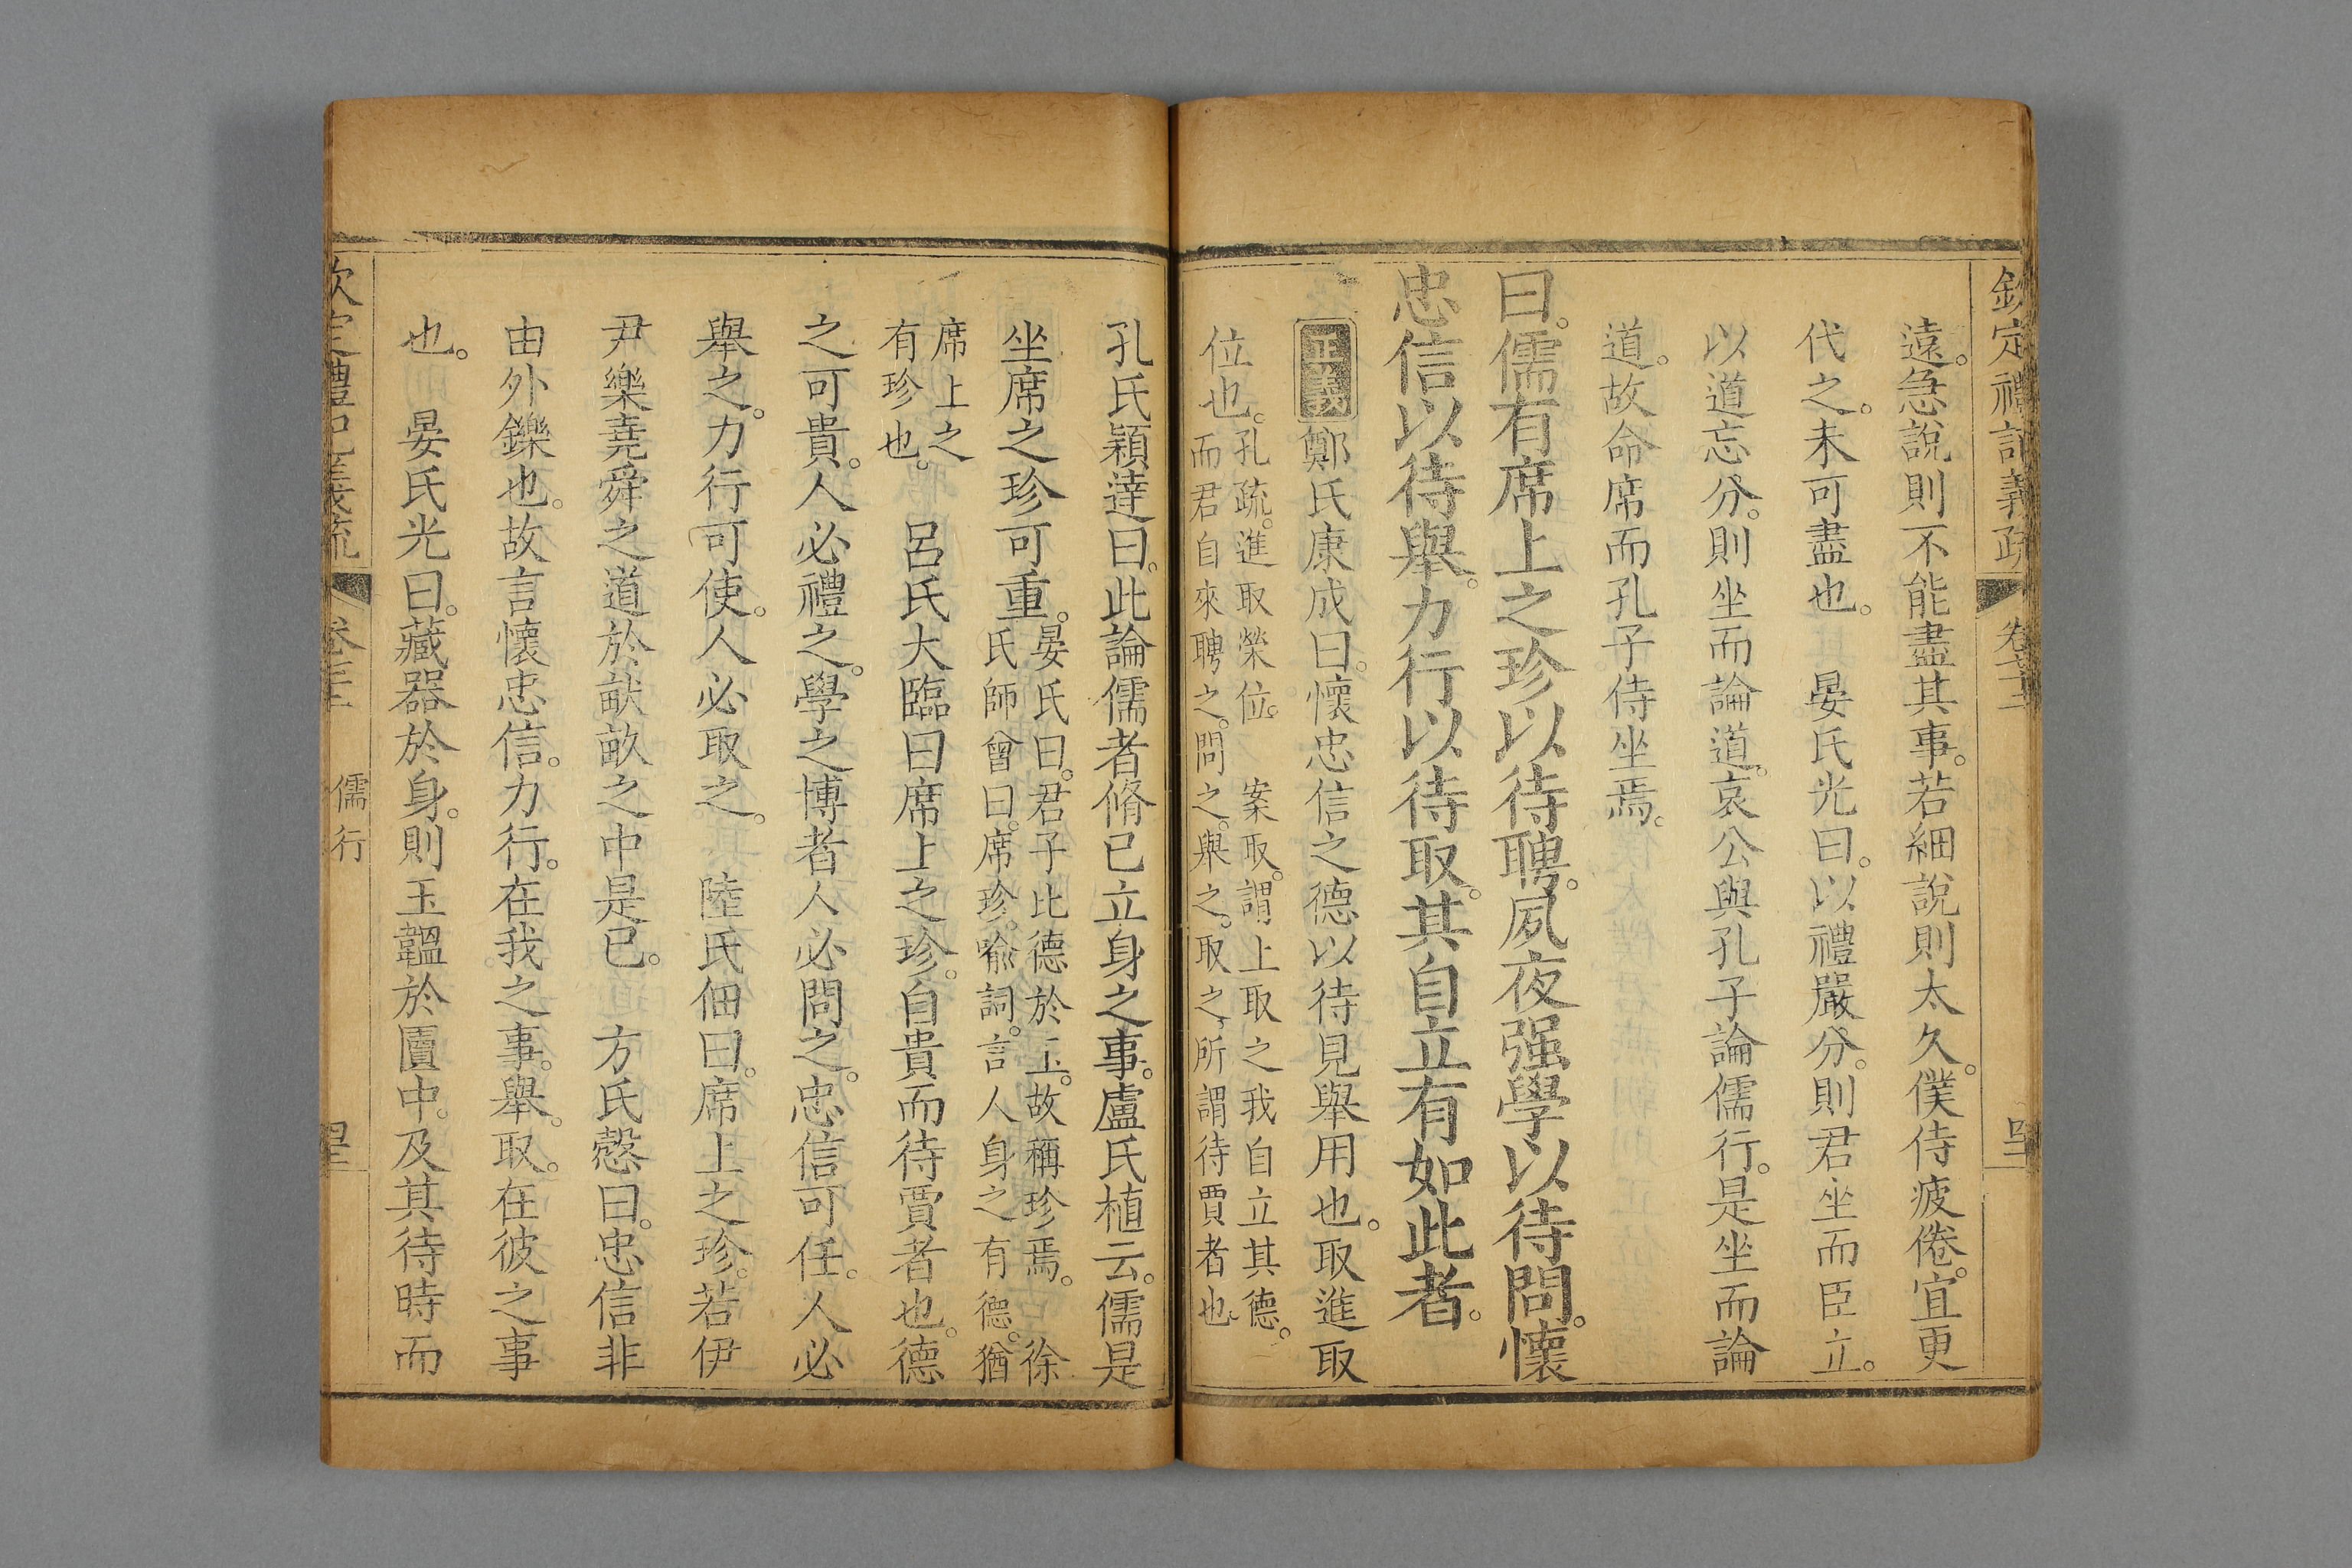 遠。急說則不能盡其事。若細說則太久。僕侍疲倦。宜更
代之。未可盡也。　晏氏光曰。以禮嚴分。則君坐而臣立。
以道忘分。則坐而論道。哀公與孔子論儒行。是坐而論
道。故命席而孔子侍坐焉。
曰。儒有席上之珍以待聘。夙夜强學以待問。懷
忠信以待舉。力行以待取。其自立有如此者。
正義鄭氏康成曰。懷忠信之德以待見舉用也。取進取
位也。
孔疏。進取榮位。　案取。謂上取之我自立其德。
而君自來聘之。問之。舉之。取之。所謂待賈者也。
孔氏穎達曰。此論儒者脩已立身之事。盧氏植云。儒是
坐席之珍可重。
晏氏曰。君子比德於玉。故稱珍焉。　徐
氏師曾曰。席珍。喻詞。言人身之有德。猶
席上之
有珍也。
呂氏大臨曰席上之珍。自貴而待賈者也。德
之可貴。人必禮之。學之博者人必問之。忠信可任。人必
舉之。力行可使。人必取之。　陸氏佃曰。席上之珍。若伊
尹樂堯舜之道於畎畝之中是已。　方氏慤曰。忠信非
由外鑠也。故言懷忠信。力行。在我之事。舉。取。在彼之事
也。　晏氏光曰。藏器於身。則玉韞於匵中。及其待時而
儒行